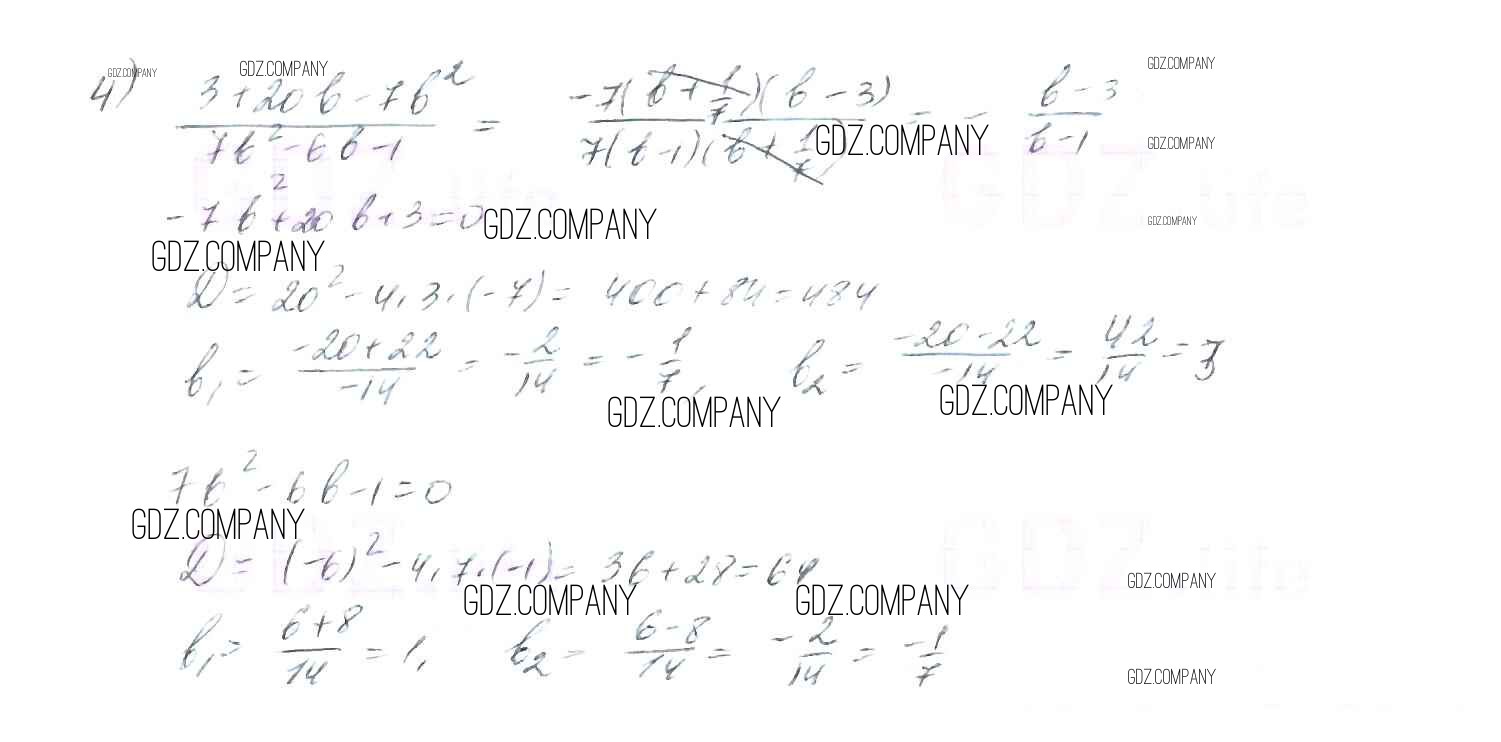 GDZ.COMPANY GDZ.COMPANY GDZ.COMPANY
4) (3+20b-7b²)/(7b²-6b-1) = (-7(b+1/7)(b-3))/(7(b-1)(b+1/7)) = - (b-3)/(b-1)
GDZ.COMPANY GDZ.COMPANY
-7b²+20b+3=0
GDZ.COMPANY GDZ.COMPANY
GDZ.COMPANY
D = 20² - 4·3·(-7) = 400+84=484
b₁ = (-20+22)/(-14) = -2/14 = -1/7, b₂ = (-20-22)/(-14) = 42/14 = 3
GDZ.COMPANY GDZ.COMPANY
7b²-6b-1=0
GDZ.COMPANY
D = (-6)² - 4·7·(-1) = 36+28=64
GDZ.COMPANY GDZ.COMPANY GDZ.COMPANY
b₁ = (6+8)/14 = 1, b₂ = (6-8)/14 = -2/14 = -1/7
GDZ.COMPANY